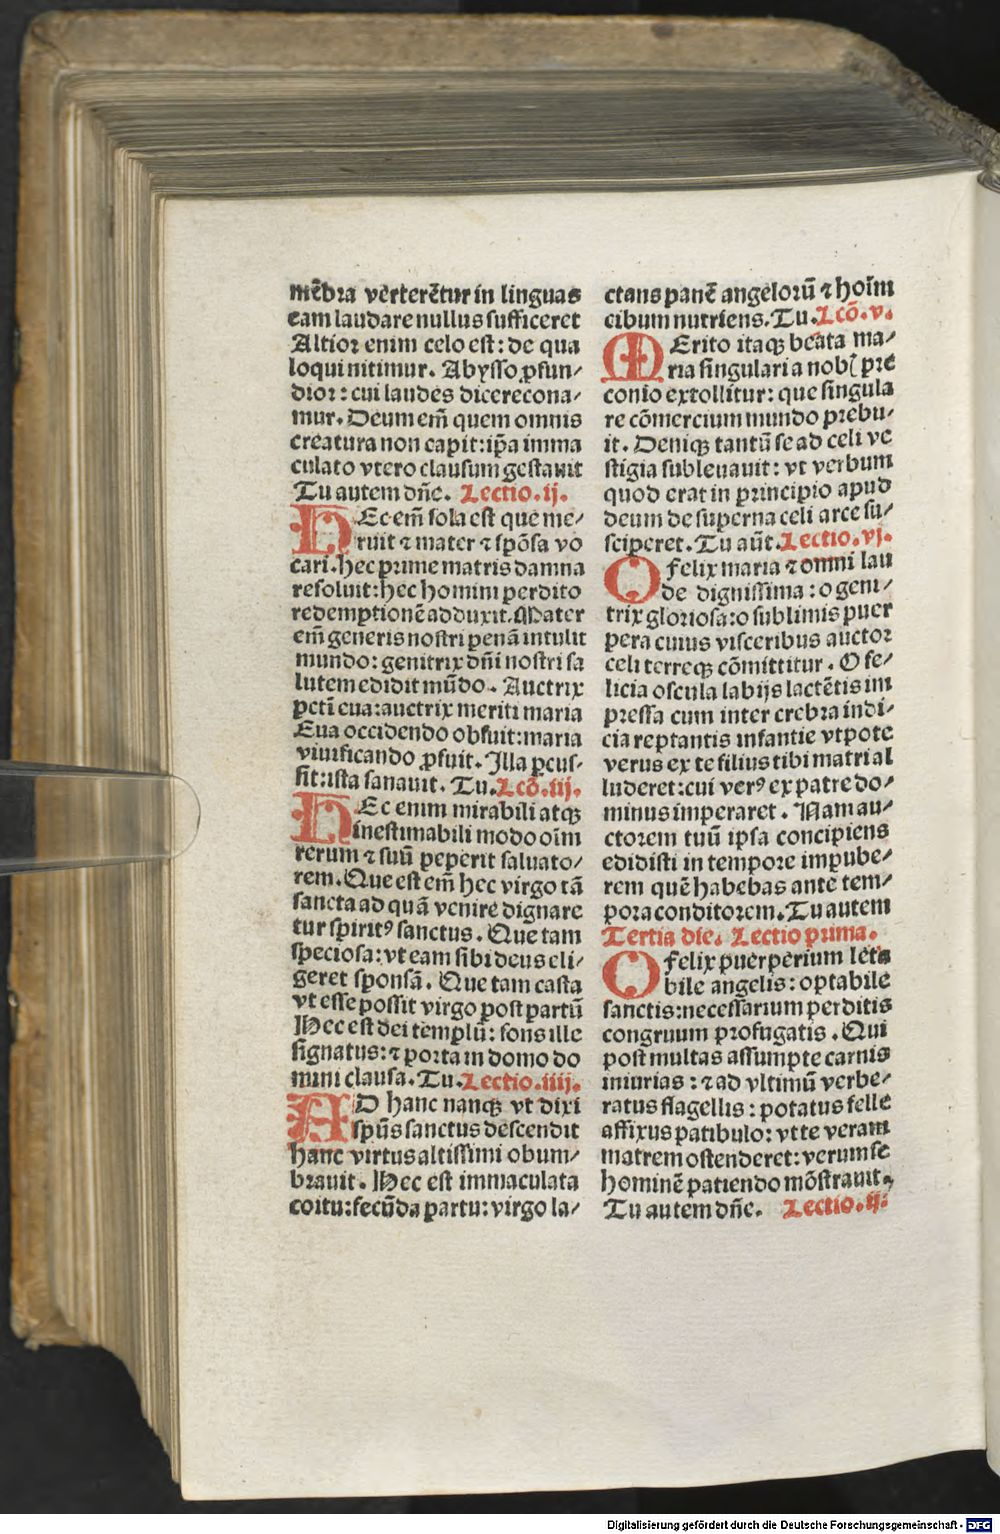 mēbra verterētur in linguas
eam laudare nullus sufficeret
Altior enim celo est: de qua
loqui nitimur. Abysso ꝓfun/
dior: cui laudes dicere cona/
mur. Deum em̄ quem omnis
creatura non capit: ip̄a imma
culato vtero clausum gestauit
Tu autem dn̄e. Lectio.ij.
HEc em̄ sola est que me/
ruit ⁊ mater ⁊ spōsa vo
cari. hec prime matris damna
resoluit: hec homini perdito
redemptionē adduxit. Mater
em̄ generis nostri penā intulit
mundo: genitrix dn̄i nostri sa
lutem edidit mūdo. Auctrix
pct̄i eua: auctrix meriti maria
Eua occidendo obfuit: maria
viuificando ꝓfuit. Illa ꝑcus/
sit: ista sanauit. Tu. Lcō.iij.
HEc enim mirabili atqꝫ
inestimabili modo oīm
rerum ⁊ suū peperit saluato/
rem. Que est em̄ hec virgo tā
sancta ad quā venire dignare
tur spiritꝰ sanctus. Que tam
speciosa: vt eam sibi deus eli/
geret sponsā. Que tam casta
vt esse possit virgo post partū
Hec est dei templū: fons ille
signatus: ⁊ porta in domo do
mini clausa. Tu. Lectio.iiij.
AD hanc nanqꝫ vt dixi
spūs sanctus descendit
hanc virtus altissimi obum/
brauit. Hec est immaculata
coitu: fecūda partu: virgo la/
ctans panē angelorū ⁊ hoīm
cibum nutriens. Tu. Lcō.v.
MErito itaqꝫ beata ma/
ria singularia nobꝭ pre
conio extollitur: que singula
re cōmercium mundo prebu/
it. Deniqꝫ tantū se ad celi ve
stigia subleuauit: vt verbum
quod erat in principio apud
deum de superna celi arce su/
sciperet. Tu aūt. Lectio.vj.
O felix maria ⁊ omni lau
de dignissima: o geni/
trix gloriosa: o sublimis puer
pera cuius visceribus auctor
celi terreqꝫ cōmittitur. O fe/
licia oscula labijs lactētis im
pressa cum inter crebra indi/
cia reptantis infantie vtpote
verus ex te filius tibi matri al
luderet: cui verꝰ ex patre do/
minus imperaret. Nam au/
ctorem tuū ipsa concipiens
edidisti in tempore impube/
rem quē habebas ante tem/
pora conditorem. Tu autem
Tertia die. Lectio prima.
O felix puerperium leta
bile angelis: optabile
sanctis: necessarium perditis
congruum profugatis. Qui
post multas assumpte carnis
iniurias: ⁊ ad vltimū verbe/
ratus flagellis: potatus felle
affixus patibulo: vt te veram
matrem ostenderet: verum se
hominē patiendo mōstrauit.
Tu autem dn̄e. Lectio.ij.
Digitalisierung gefördert durch die Deutsche Forschungsgemeinschaft - DFG